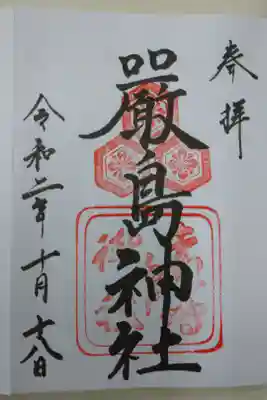 奉拝
厳島神社
令和二年十月十八日